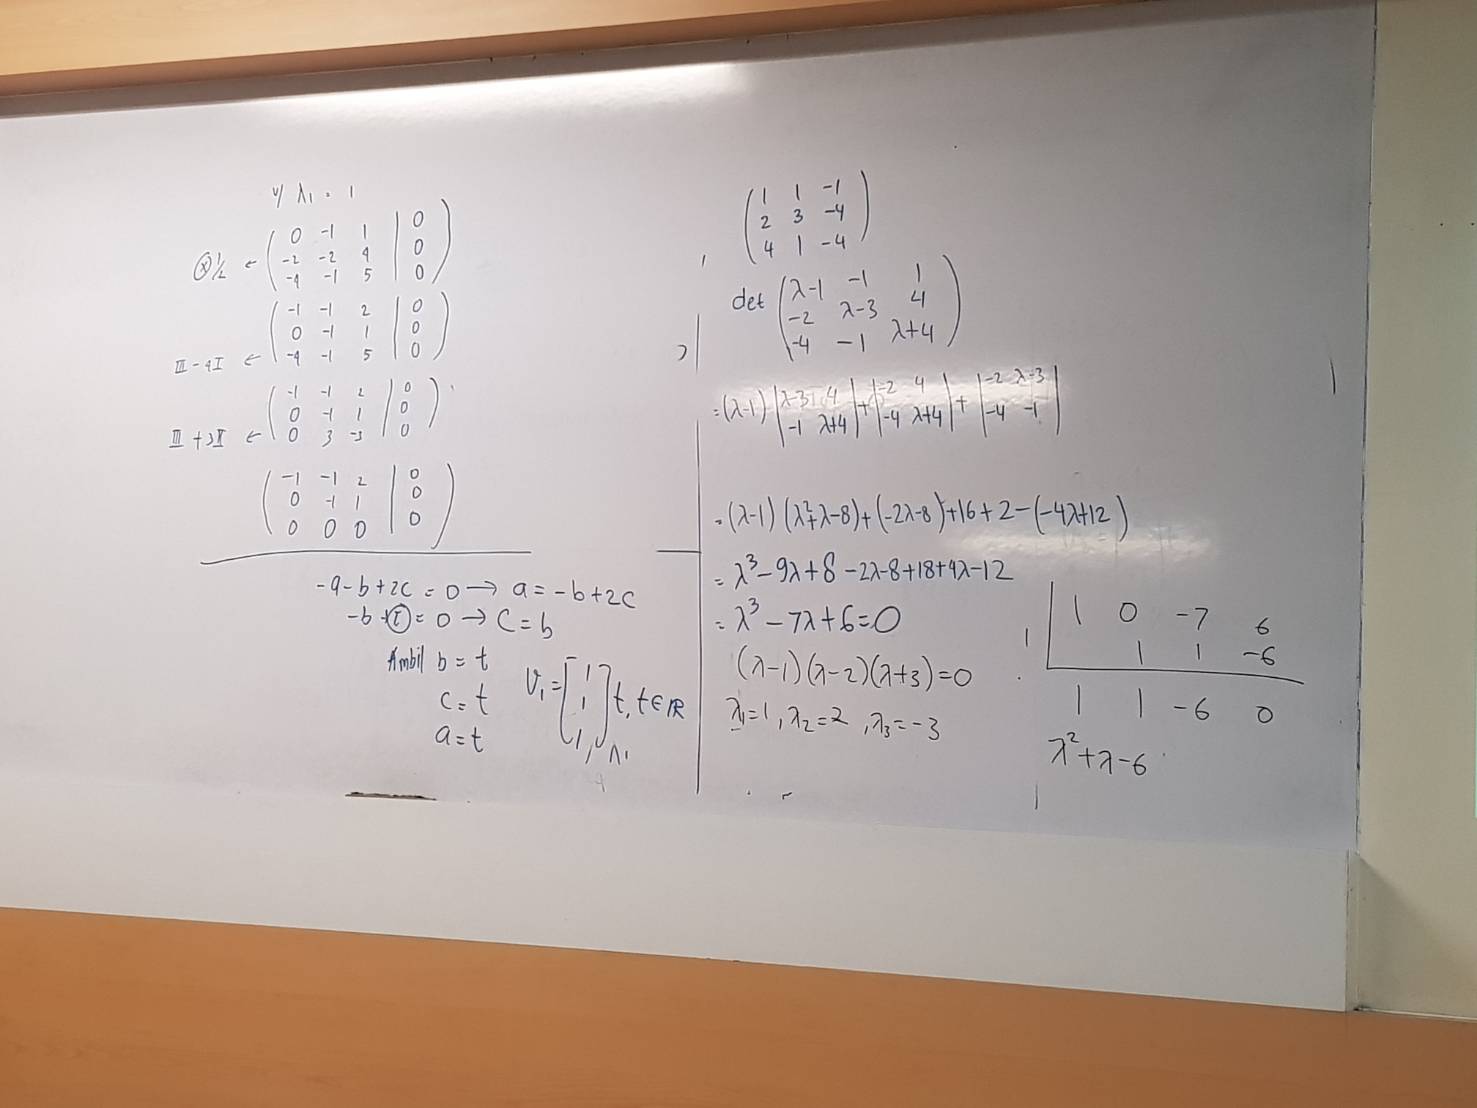 u/ λ₁ = 1
ⓧ½ ← ( 0 -1 1 | 0
-2 -2 4 | 0
-4 -1 5 | 0 )
( -1 -1 2 | 0
0 -1 1 | 0
III - 4I ← -4 -1 5 | 0 )
( -1 -1 2 | 0
0 -1 1 | 0
III + 3II ← 0 3 -3 | 0 )
( -1 -1 2 | 0
0 -1 1 | 0
0 0 0 | 0 )
-a-b+2c = 0 → a = -b+2c
-b + c = 0 → c = b
Ambil b = t
c = t
a = t
v₁ = [ 1
1
1 ] t, t ∈ ℝ
( 1 1 -1
2 3 -4
4 1 -4 )
det ( λ-1 -1 1
-2 λ-3 4
-4 -1 λ+4 )
= (λ-1) | λ-3 4 | + | -2 4 | + | -2 λ-3 |
| -1 λ+4 | | -4 λ+4 | | -4 -1 |
= (λ-1) (λ²+λ-8) + (-2λ-8) + 16 + 2 - (-4λ+12)
= λ³ - 9λ + 8 - 2λ - 8 + 18 + 4λ - 12
= λ³ - 7λ + 6 = 0
(λ-1)(λ-2)(λ+3) = 0
λ₁ = 1, λ₂ = 2, λ₃ = -3
1 0 -7 6
1 | 1 1 -6
1 1 -6 0
λ² + λ - 6